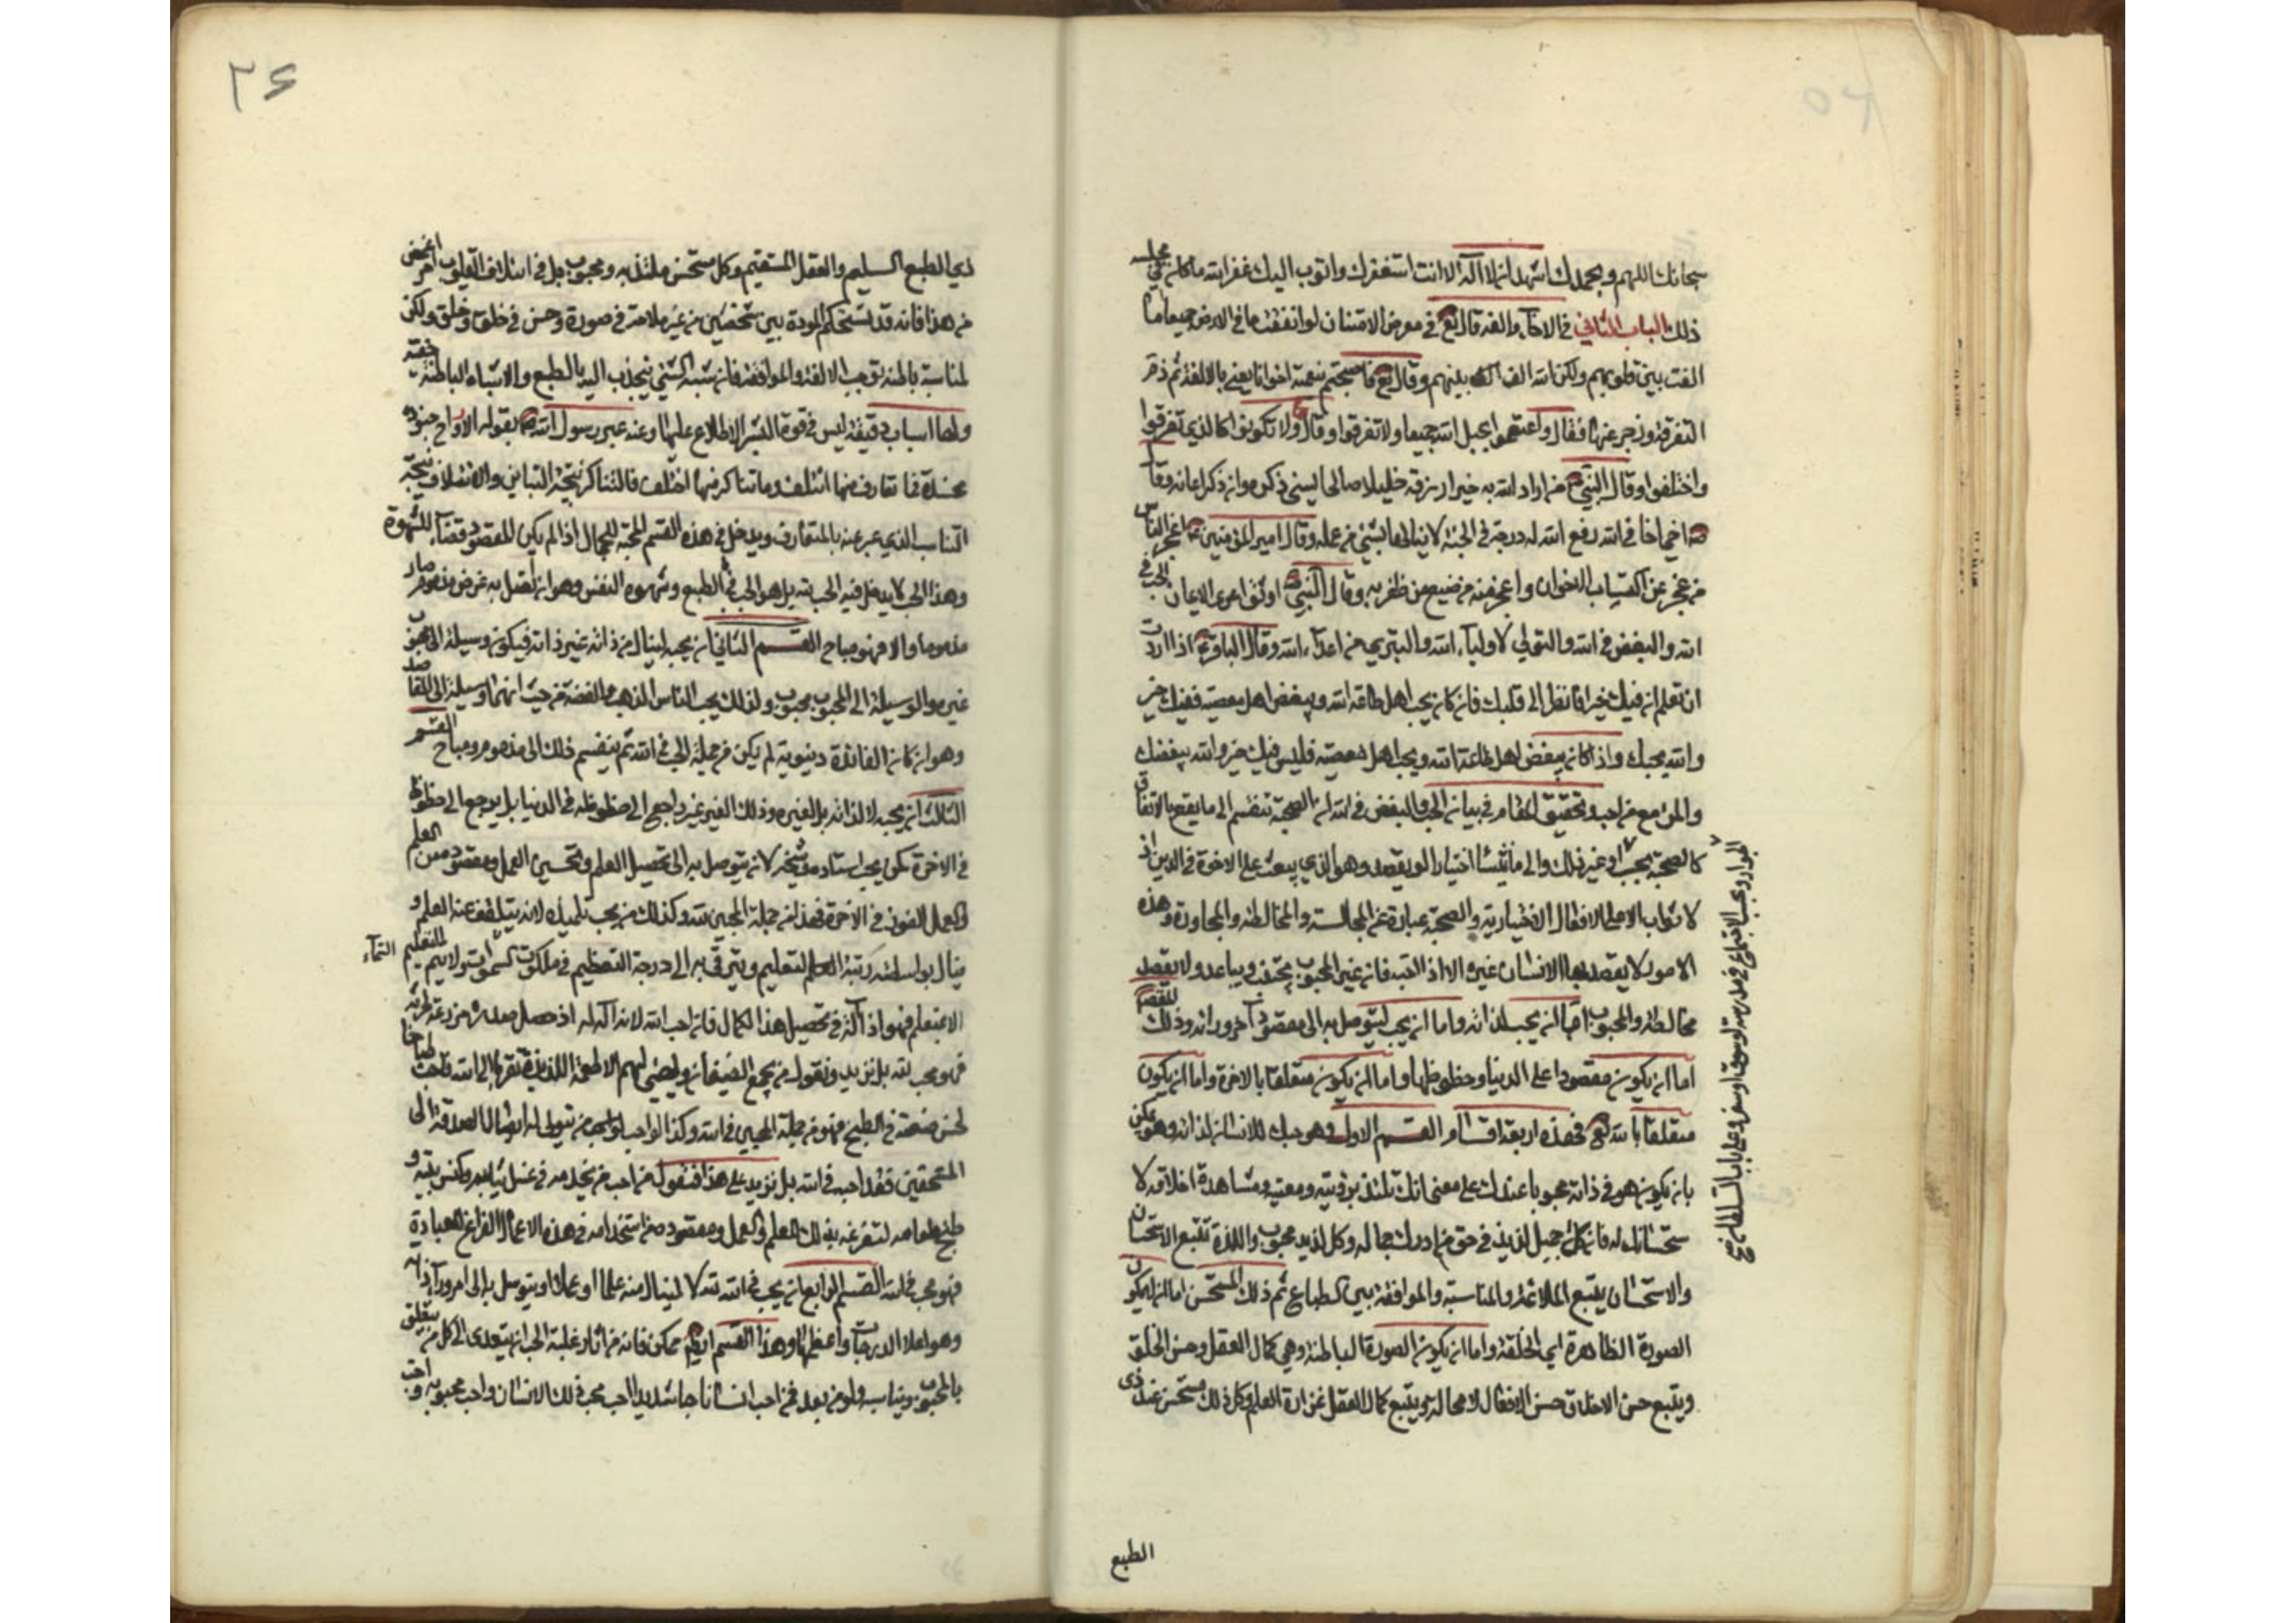 سبحانك اللهم وبحمدك اشهد ان لا اله الا انت استغفرك واتوب اليك غفر الله ما كان في مجلسه
ذلك الباب الثاني في الاخاء والفه قال تع في معرض الامتنان لو انفقت ما في الارض جميعا ما
الفت بين قلوبهم ولكن الله الف بينهم وقال تع فاصبحتم بنعمته اخوانا يعني بالالفة ثم ذم
التفرقة وزجر عنها فقال واعتصموا بحبل الله جميعا ولا تفرقوا وقال ولا تكونوا كالذين تفرقوا
واختلفوا وقال النبي ص من اراد الله به خيرا رزقه خليلا صالحا ان نسي ذكره وان ذكر اعانه وقال
ص من اخى اخا في الله رفع الله له درجة في الجنة لا ينالها بشئ من عمله وقال امير المؤمنين ع اعجز الناس
من عجز عن اكتساب الاخوان واعجز منه من ضيع من ظفر به وقال النبي ص اوثق عرى الايمان الحب في
الله والبغض في الله والتولي لاولياء الله والتبري من اعداء الله وقال الباقر ع اذا اردت
ان تعلم ان فيك خيرا فانظر الى قلبك فان كان يحب اهل طاعة الله ويبغض اهل معصيته ففيك خير
والله يحبك واذا كان يبغض اهل طاعة الله ويحب اهل معصيته فليس فيك خير والله يبغضك
والمرء مع من احب وتحقيق المقام في بيان الحب والبغض في الله ان الصحبة تنقسم الى ما يقع بالاتفاق
كالصحبة بحسب او غير ذلك والى ما ينشأ اختيارا ويقصد وهو الذي يبعث على الاخوة في الدين اذ
لا ثواب الا على الافعال الاختيارية والصحبة عبارة عن المجالسة والمخالطة والمجاورة وهذه
الامور لا يقصد بها الانسان غيره الا اذا احبه فان غير المحبوب يجتنب ويباعد ولا يقصد
مخالطته والمحبوب اما ان يحب لذاته واما ان يحب ليتوصل به الى مقصود اخر وراءه وذلك المقصد
اما ان يكون مقصودا على الدنيا وحظوظها واما ان يكون متعلقا بالاخرة واما ان يكون
متعلقا بالله تع فهذه اربعة اقسام القسم الاول وهو حبك للانسان لذاته وهو ممكن
بان يكون هو في ذاته محبوبا عندك على معنى انك تلتذ برؤيته ومعيته ومشاهدة اخلاقه لا
ستحسانك له فان كل جميل لذيذ في حق من ادرك جماله وكل لذيذ محبوب واللذة تتبع الاستحسان
والاستحسان يتبع الملائمة والمناسبة والموافقة بين الطباع ثم ذلك المستحسن اما ان يكون
الصورة الظاهرة اي الخلقة واما ان يكون الصورة الباطنة وهي كمال العقل وحسن الخلق
ويتبع حسن الاخلاق حسن الافعال لا محالة ويتبع كمال العقل غزارة العلم وكل ذلك مستحسن عند ذي
الجوار وبحسب الاجتماع في مدرسة او سوق او سفر وعلى باب السلطان
الطبع
٢٦
ذي الطبع السليم والعقل المستقيم وكل مستحسن ملتذ به ومحبوب بل في ائتلاف القلوب امر اغمض
من هذا فانه قد تستحكم المودة بين شخصين من غير ملاحة في صورة وحسن في خلق وخلق ولكن
لمناسبة باطنة توجب الالفة والموافقة فان شبه الشئ ينجذب اليه بالطبع والاشباه الباطنة خفية
ولها اسباب دقيقة ليس في قوة البشر الاطلاع عليها وعنه عبر رسول الله ص بقوله الارواح جنود
مجندة فما تعارف منها ائتلف وما تناكر منها اختلف فالتناكر نتيجة التباين والائتلاف نتيجة
التناسب الذي عبر عنه بالتعارف ويدخل في هذه القسم المحبة للجمال اذا لم يكن المقصود قضاء الشهوة
وهذا الحب لا يدخل فيه الحب لله بل هو الحب في الطبع وشهوة النفس وهو ان اتصل به غرض مذموم صار
مذموما والا فهو مباح القسم الثاني ان يحبه لينال من ذاته غير ذاته فيكون وسيلة الى محبوب
غيره والوسيلة الى المحبوب محبوب ولذلك يحب الناس الذهب والفضة من حيث انهما وسيلة الى المقاصد
وهو ان كان الفائدة دنيوية لم يكن من جملة الحب في الله ثم ينقسم ذلك الى مذموم ومباح القسم
الثالث ان يحبه لا لذاته بل لغيره وذلك الغير غير راجع الى حظوظه في الدنيا بل يرجع الى حظوظها
في الاخرة كمن يحب استاده وشيخه لانه يتوصل به الى تحصيل العلم وتحسين العمل ومقصوده من العلم
والعمل الفوز في الاخرة فهذا من جملة المحبين لله وكذلك من يحب تلميذه لانه يتلقف عنه العلم و
ينال بواسطته رتبة التعليم ويترقى به الى درجة التعظيم في ملكوت السموات ولا يتم التعليم السماء
الا بمتعلم فهو اذا آلة في تحصيل هذا الكمال فان احب الله لانه آلة له اذ جعل صدره مزرعة لحرثه
فهو محب لله بل نزيد ونقول من يجمع الضيفان ويهيئ لهم الاطعمة اللذيذة تقربا الى الله فاحب طباخا
لحسن صنعته في الطبخ فهو من جملة المحبين في الله وكذا لو احب من يتولى له ايصال الصدقة الى
المستحقين فقد احبه في الله بل نزيد على هذا فنقول من احب من يخدمه في غسل ثيابه وكنس بيته و
طبخ طعامه لتفرغه بذلك للعلم والعمل ومقصوده من استخدامه في هذه الاعمال الفراغ للعبادة
فهو محب في الله القسم الرابع ان يحب في الله لله لا لينال منه علما او عملا او يتوسل به الى امر وراء ذاته
وهو اعلا الدرجات واعظمها وهذا القسم ايضا ممكن فانه من اثار غلبة الحب ان يتعدى الى كل من يتعلق
بالمحبوب ويناسبه ولو من بعد فمن احب انسانا حبا شديدا احب محب ذلك الانسان واحب محبوبه واحب